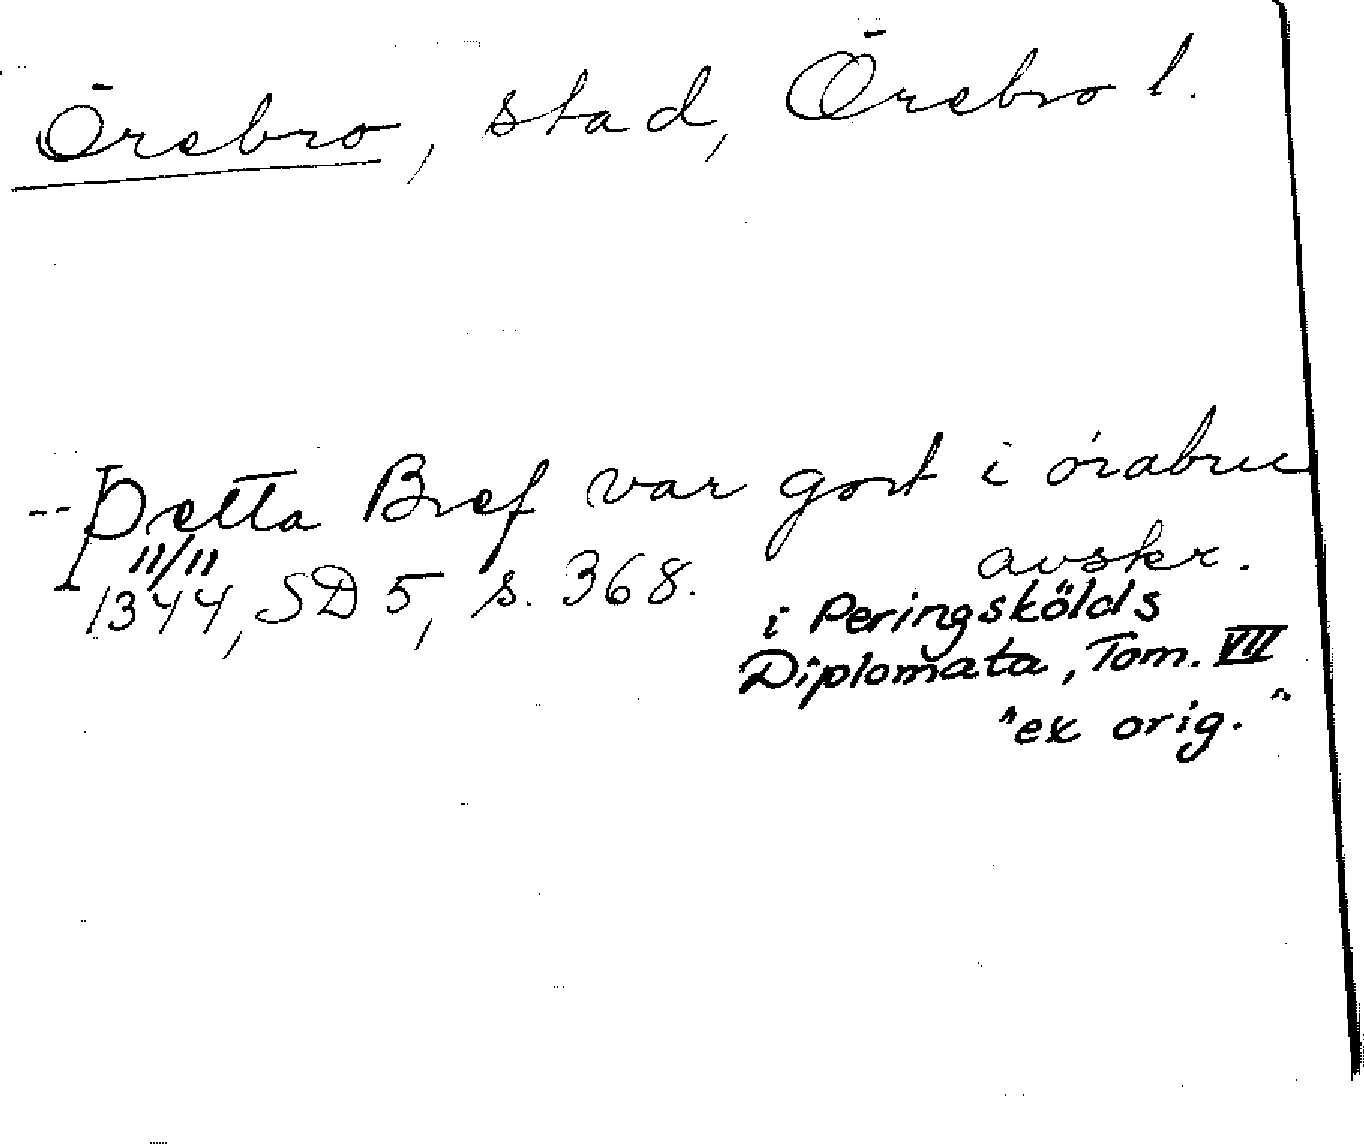 Örebro, stad, Örebro l.
-- Þetta Bref var gort i órabru
11/11
1344, SD 5, s. 368. avskr.
i Peringskölds
Diplomata, Tom. VII
"ex orig."